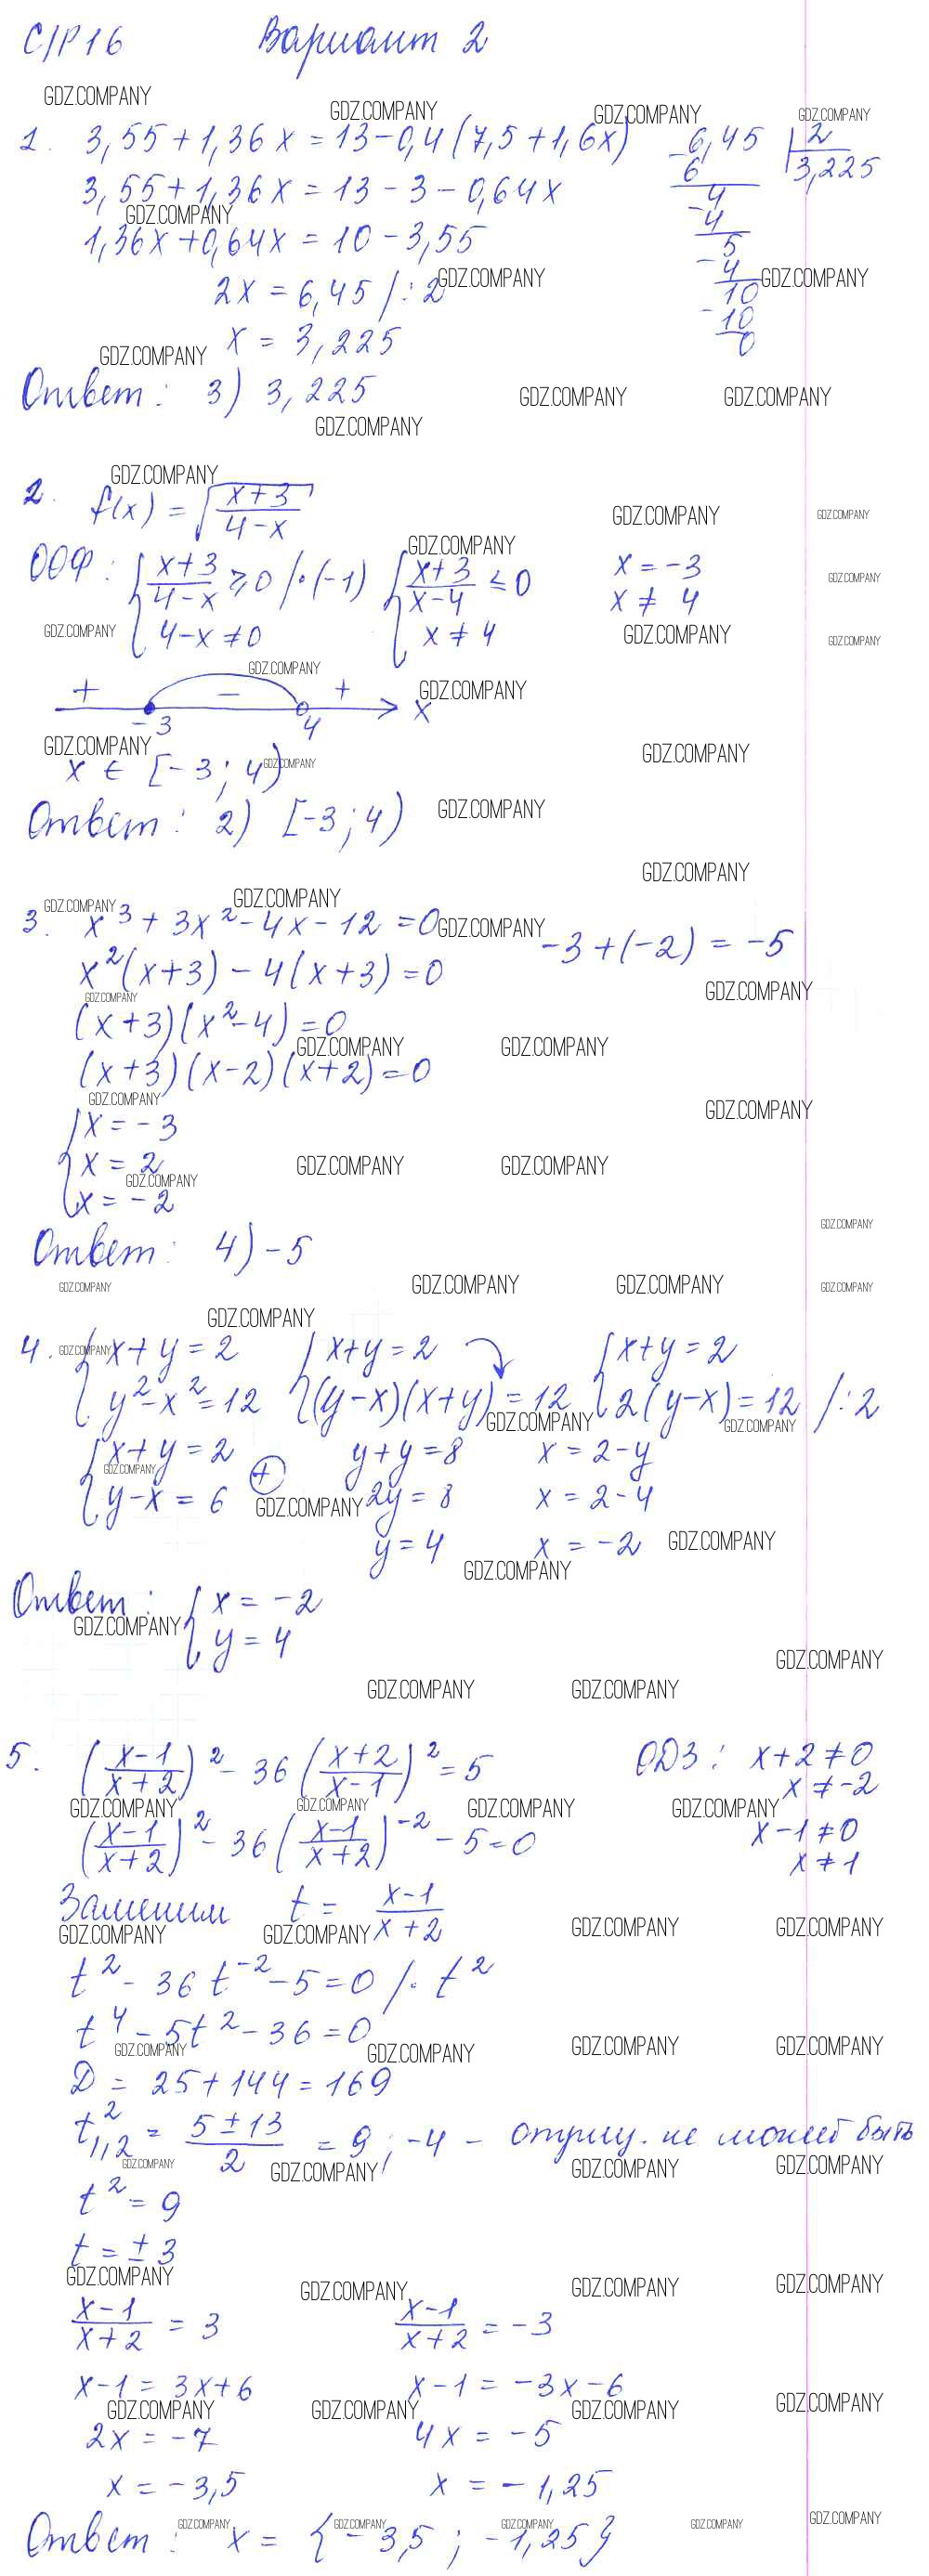 С/Р 16 Вариант 2
GDZ.COMPANY
1. 3,55 + 1,36x = 13 - 0,4(7,5 + 1,6x)
3,55 + 1,36x = 13 - 3 - 0,64x
1,36x + 0,64x = 10 - 3,55
2x = 6,45 /: 2
x = 3,225
6,45 | 2
6 3,225
4
4
5
4
10
10
0
Ответ: 3) 3,225
2. f(x) = √((x+3)/(4-x))
ООФ: { (x+3)/(4-x) ≥ 0 /·(-1) { (x+3)/(x-4) ≤ 0 x = -3
{ 4-x ≠ 0 { x ≠ 4 x ≠ 4
+ - + x
-3 4
x ∈ [-3; 4)
Ответ: 2) [-3; 4)
3. x³ + 3x² - 4x - 12 = 0
x²(x+3) - 4(x+3) = 0 -3 + (-2) = -5
(x+3)(x²-4) = 0
(x+3)(x-2)(x+2) = 0
{ x = -3
x = 2
x = -2
Ответ: 4) -5
4. { x+y = 2 { x+y = 2 { x+y = 2
{ y²-x² = 12 { (y-x)(x+y) = 12 { 2(y-x) = 12 /: 2
{ x+y = 2 y+y = 8 x = 2-y
{ y-x = 6 (+) 2y = 8 x = 2-4
y = 4 x = -2
Ответ: { x = -2
{ y = 4
5. ((x-1)/(x+2))² - 36((x+2)/(x-1))² = 5 ОДЗ: x+2 ≠ 0
x ≠ -2
((x-1)/(x+2))² - 36((x-1)/(x+2))⁻² - 5 = 0 x-1 ≠ 0
x ≠ 1
Заменим t = (x-1)/(x+2)
t² - 36t⁻² - 5 = 0 /· t²
t⁴ - 5t² - 36 = 0
D = 25 + 144 = 169
t²₁,₂ = (5 ± 13)/2 = 9; -4 - отриц. не может быть
t² = 9
t = ± 3
(x-1)/(x+2) = 3 (x-1)/(x+2) = -3
x-1 = 3x+6 x-1 = -3x-6
2x = -7 4x = -5
x = -3,5 x = -1,25
Ответ: x = {-3,5; -1,25}